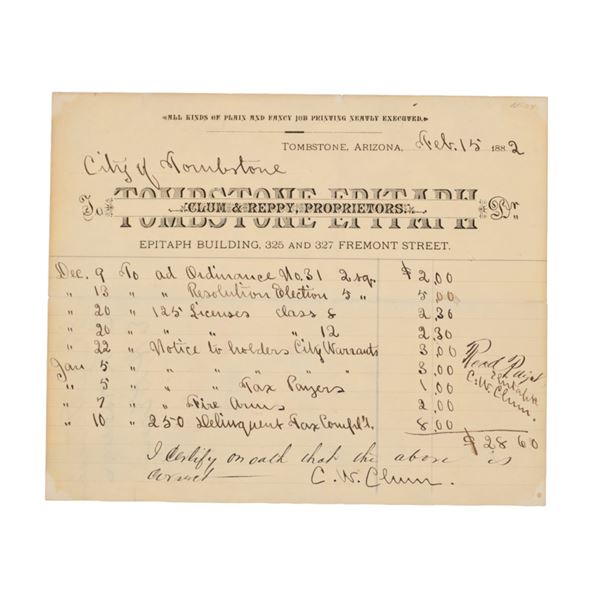 ALL KINDS OF PLAIN AND FANCY JOB PRINTING NEATLY EXECUTED.
TOMBSTONE, ARIZONA, Feb. 15 1882
City of Tombstone
To TOMBSTONE EPITAPH Dr.
CLUM & REPPY, PROPRIETORS.
EPITAPH BUILDING, 325 AND 327 FREMONT STREET.
Dec. 9 To ad Ordinance No. 31 2 sq. $ 2.00
" 13 " " Resolution Election 5 " 5.00
" 20 " 125 Licenses class 8 2.30
" 20 " " " " 12 2.30
" 22 " Notice to holders City Warrants 3.00
Jan 5 " " " " " 3.00
" 5 " " " Tax Payers 1.00
" 7 " " Fire Arms 2.00
" 10 " 250 Delinquent Tax 8.00
$ 28 60
Recd Paymt
Epitaph
C.W. Clum.
I certify on oath that the above is
correct C. W. Clum.